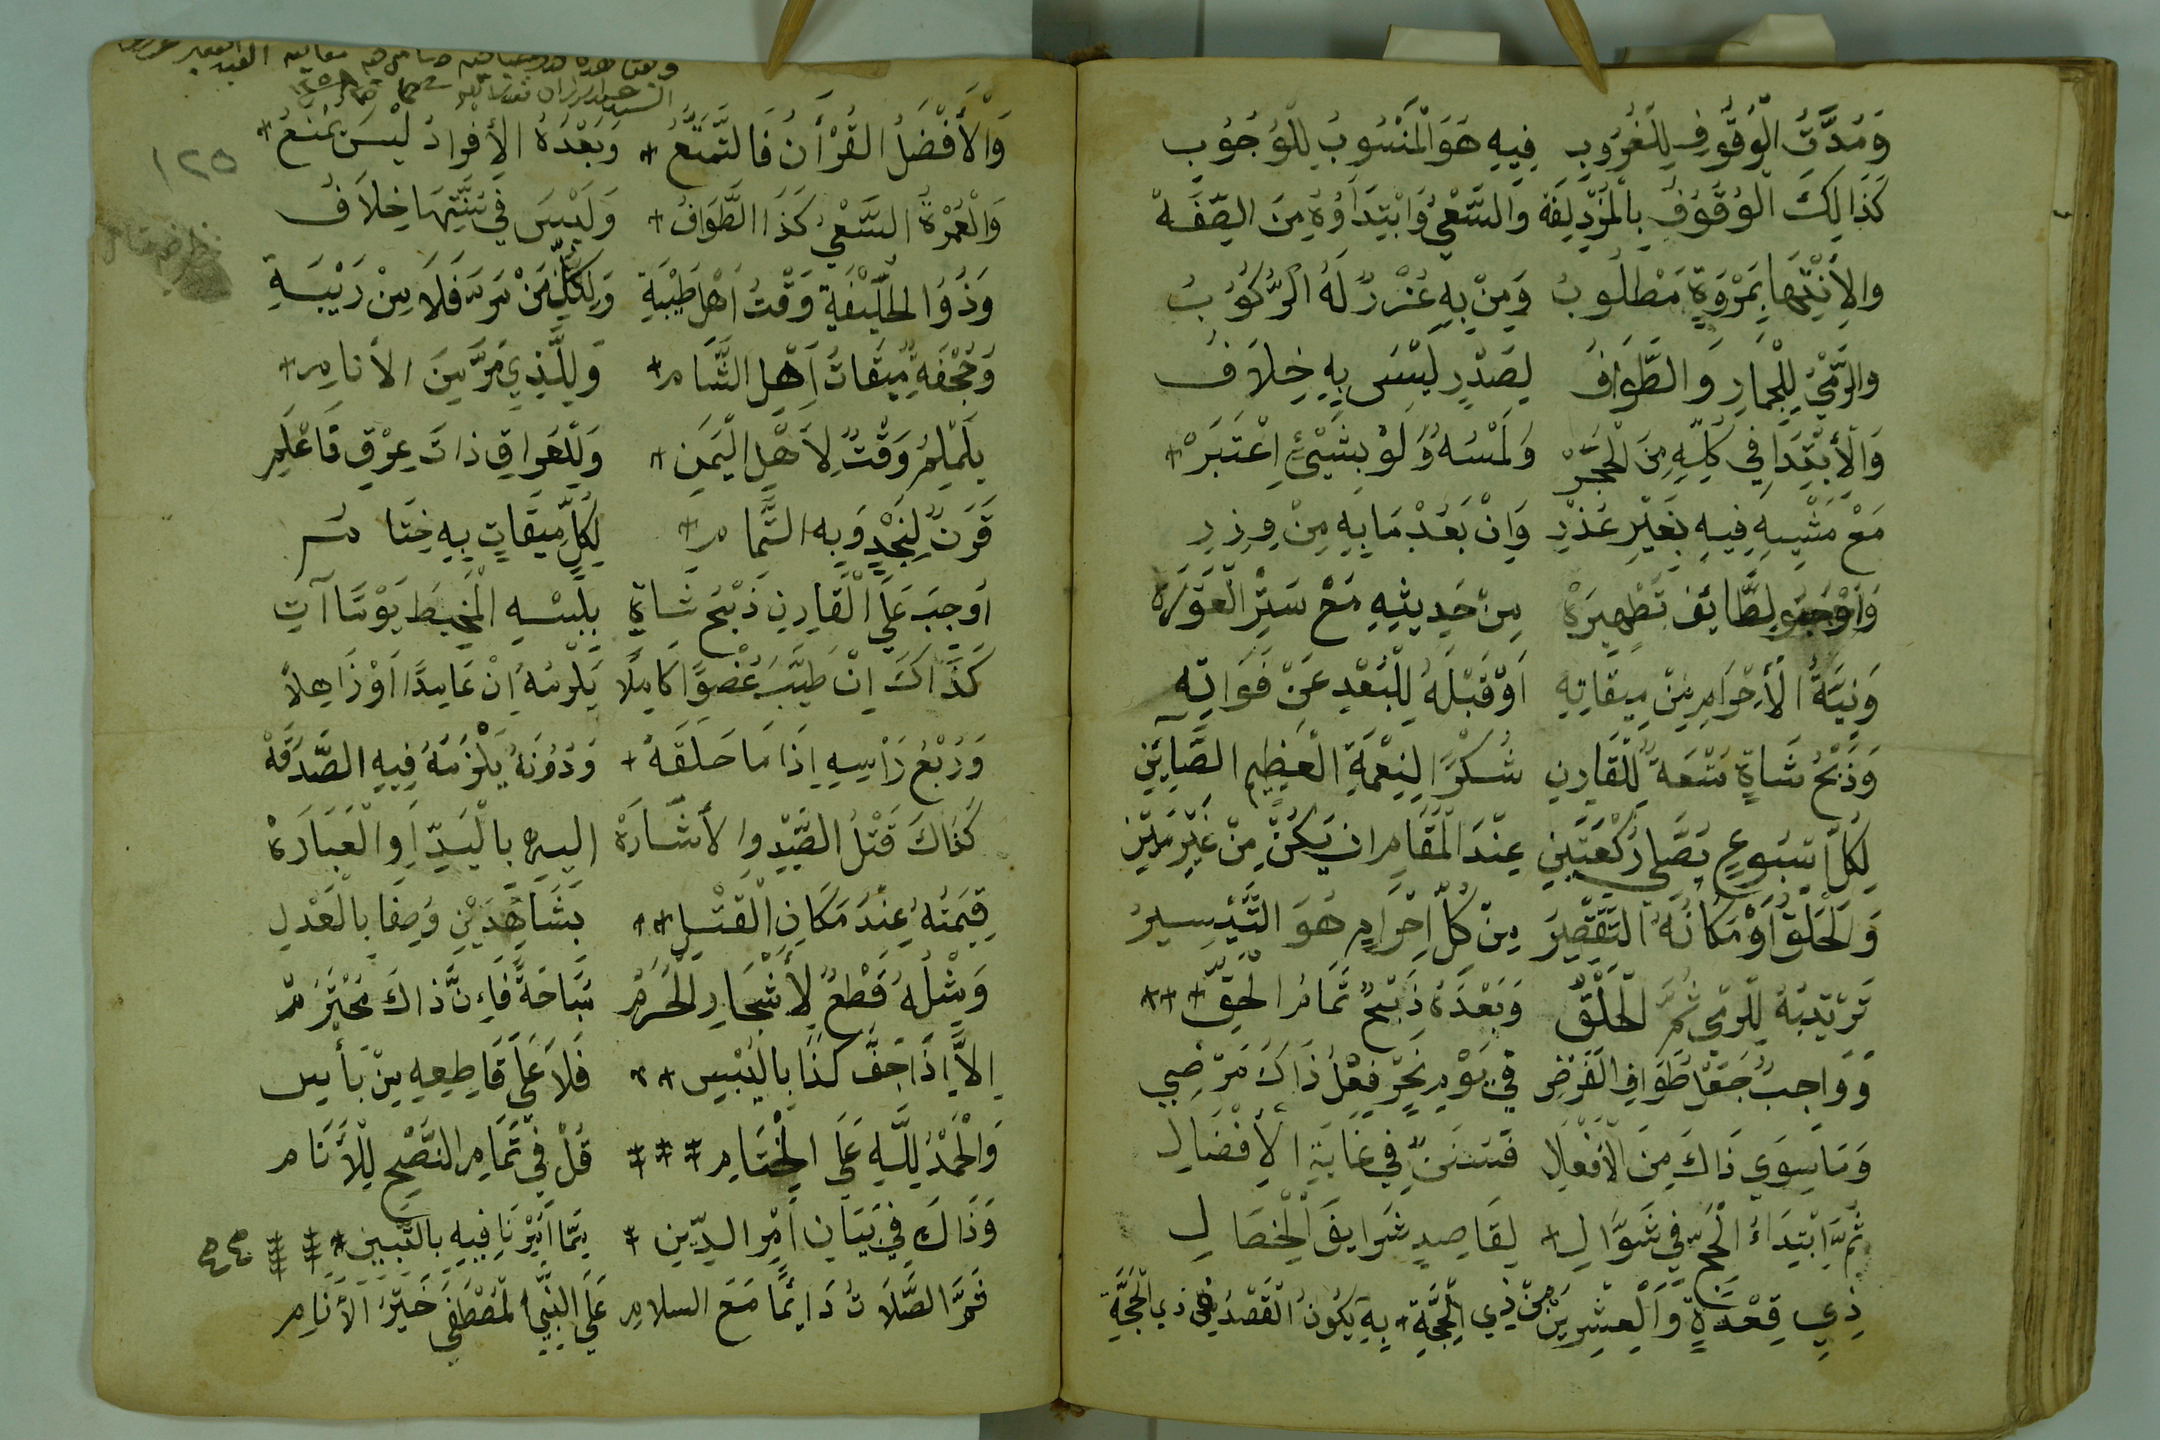 وَمُدَّتُ الْوُقُوفِ لِلْغُرُوبِ فِيهِ هَوَ الْمَنْسُوبُ لِلْوُجُوبِ
كَذَالِكَ الْوُقُوفُ بِالْمُزْدَلِفَة وَالسَّعْيُ وَابْتِدَاوُهُ مِنَ الصِّفَهْ
والاِنْتِهَا بِمَرْوَةٍ مَطْلُوبُ وَمِنْ بِهِ عُذْرٌ لَهُ الرُّكُوبُ
والرَّمْيُ لِلْجِمَارِ وَالطَّوَافُ لِصَدْرٍ لَيْسَى بِهِ خِلَافُ
وَالْأَبْتِدَا فِي كُلِّهِ مِنَ الْحَجَرْ وَلَمْسُهُ وَلَوْ بِشَيْئٍ اِعْتَبَرْ
مَعْ مَشْيِهِ فِيهِ بِغَيْرِ عُذْرِ وَاِنْ بَعُدْ مَا بِهِ مِنْ وِزِرِ
وَاَوْجَبُو لِطَّائِفِ تَطْهِيرَهْ مِنْ حَدِيثِهِ مَعْ سَتْرِ الْعَوْرَهْ
وَنِيَّةُ الْأَحْرَامِ مِنْ مِيقَاتِهِ اَوْ قَبْلَهُ لِلْبُعْدِ عَنْ فَوَاتِهِ
وَذَبْحُ شَاةٍ مُتْعَهْ لِلْقَارِنِ شُكْرًا لِنِعْمَةِ الْعَظِيمِ الصَّايِنِ
لِكُلِّ اُسْبُوعٍ يُصَلِّي رَكْعَتَيْنِ عِنْدَ الْمَقَامِ ان يَكُنْ مِنْ غَيْرِ مَيْنِ
وَالْحَلْقُ اَوْ مَكَانُهُ التَّقْصِيرُ مِنْ كُلِّ اِحْرَامٍ هُوَ التَّيْسِيرُ
تَرْتِيبُهُ لِلرَّمْيِ ثُمَّ لْحَلْقُ وَبَعْدَهُ ذَبْحٌ تَمَامُ الْحَقِّ
وَوَاجِبٌ جَعْلُ طَوَافِ الْفَرْضِ فِي يَوْمِ نَحْرٍ فِعْلُ ذَاكَ مَرْضِي
وَمَا سِوَي ذَاكَ مِنَ الْأَفْعَالِ فَسُنَنٌ فِي غَايَةِ الْأِفْضَالِ
ثُمَّ ابْتِدَاءُ الْحَجِّ فِي شَوَّالِ لِقَاصِدٍ شَرَايِفَ الْخِصَالِ
ذِي قِعْدَةٍ وَالْعِشْرِينَ مِنْ ذِي الْحِجَّةِ بِهِ يَكُونُ الْقَصْدُ فِي ذي الْحَجَّة
١٢٥
وَالْأَفْضَلُ الْقُرْأَنُ فَالتَّمَتُّعُ وَبَعْدَهُ الْأِفْرَادُ لَيْسَ يُمْنَعُ
وَالْعُمْرَةُ السَّعْيُ كَذَا الطَّوَافُ وَلَيْسَ فِي سُنَّتِهَا خِلَافُ
وَذُوُ الْحُلَيْفَةِ وَقْتُ اَهْلِ طَيْبَةِ وَلِكُلِّ مَنْ مَرَّ فَلَا مِنْ رَيْبَةِ
وَجُحْفَةٌ مِيقَاتُ اَهْلِ الشَّامِ وَلِلَّذِي مَرَّ مِنَ الأَنَامِ
يَلَمْلَمُ وَقْتٌ لِاَهْلِ الْيَمَنِ وَلِلْعِرَاقِ ذَاتَ عِرْقٍ فَاعْلَمِ
قَرَنٌ لِنَجْدٍ وَبِهِ التَّمَامُ لِكُلِّ مِيقَاتٍ بِهِ خِتَامُ
اَوْجَبَ عَلَي الْقَارِنِ ذَبْحُ شَاةٍ بِلِبْسِهِ الْمَخِيطَ يَوْمًا آتِ
كَذَاكَ اِنْ طَيَّبَ عُضْوًا كَامِلًا يَلْزَمُهُ اِنْ عَامِدًا اَوْ ذَاهِلاً
وَرُبْعُ رَاْسِهِ اِذَا مَا حَلَقَهْ وَدُونَهُ يَلْزَمُهُ فِيهِ الصَّدَقَهْ
كَذَاكَ قَتْلُ الصَّيْدِ والأَشَارَهْ اليهِ بِالْيَدِّ اَوِ الْعِبَارَهْ
قِيمَتُهُ عِنْدَ مَكَانِ الْقَتْلِ بِشَاهِدَيْنِ وُصِفَا بِالْعَدْلِ
وَمِثْلُهُ قَطْعٌ لِأَشْجَارِ الْحَرَمْ مُبَاحَةً فَاِنَّ ذاكَ مُحْتَرَمْ
اِلَّا اِذَا جَفَّ كَذَا بِالْيُبْسِ فَلَا عَلَي قَاطِعِهِ مِنْ بَأْسِ
وَالْحَمْدُ لِلَّهِ عَلَي الْخِتَامِ قُلْ فِي تَمَامِ النُّصْحِ لِلْأَنَامِ
وَذَاكَ فِي بَيَانِ اَمْرِ الدِّينِ بِمَا اُمِرْنَا فِيهِ بِالتَّبْيِينِ
ثُمَّ الصَّلَاتُ دَائِمًا مَعَ السلامِ عَلَي النَّبِيِّ الْمُصْطَفَي خَيْرُ الْأَنَامِ